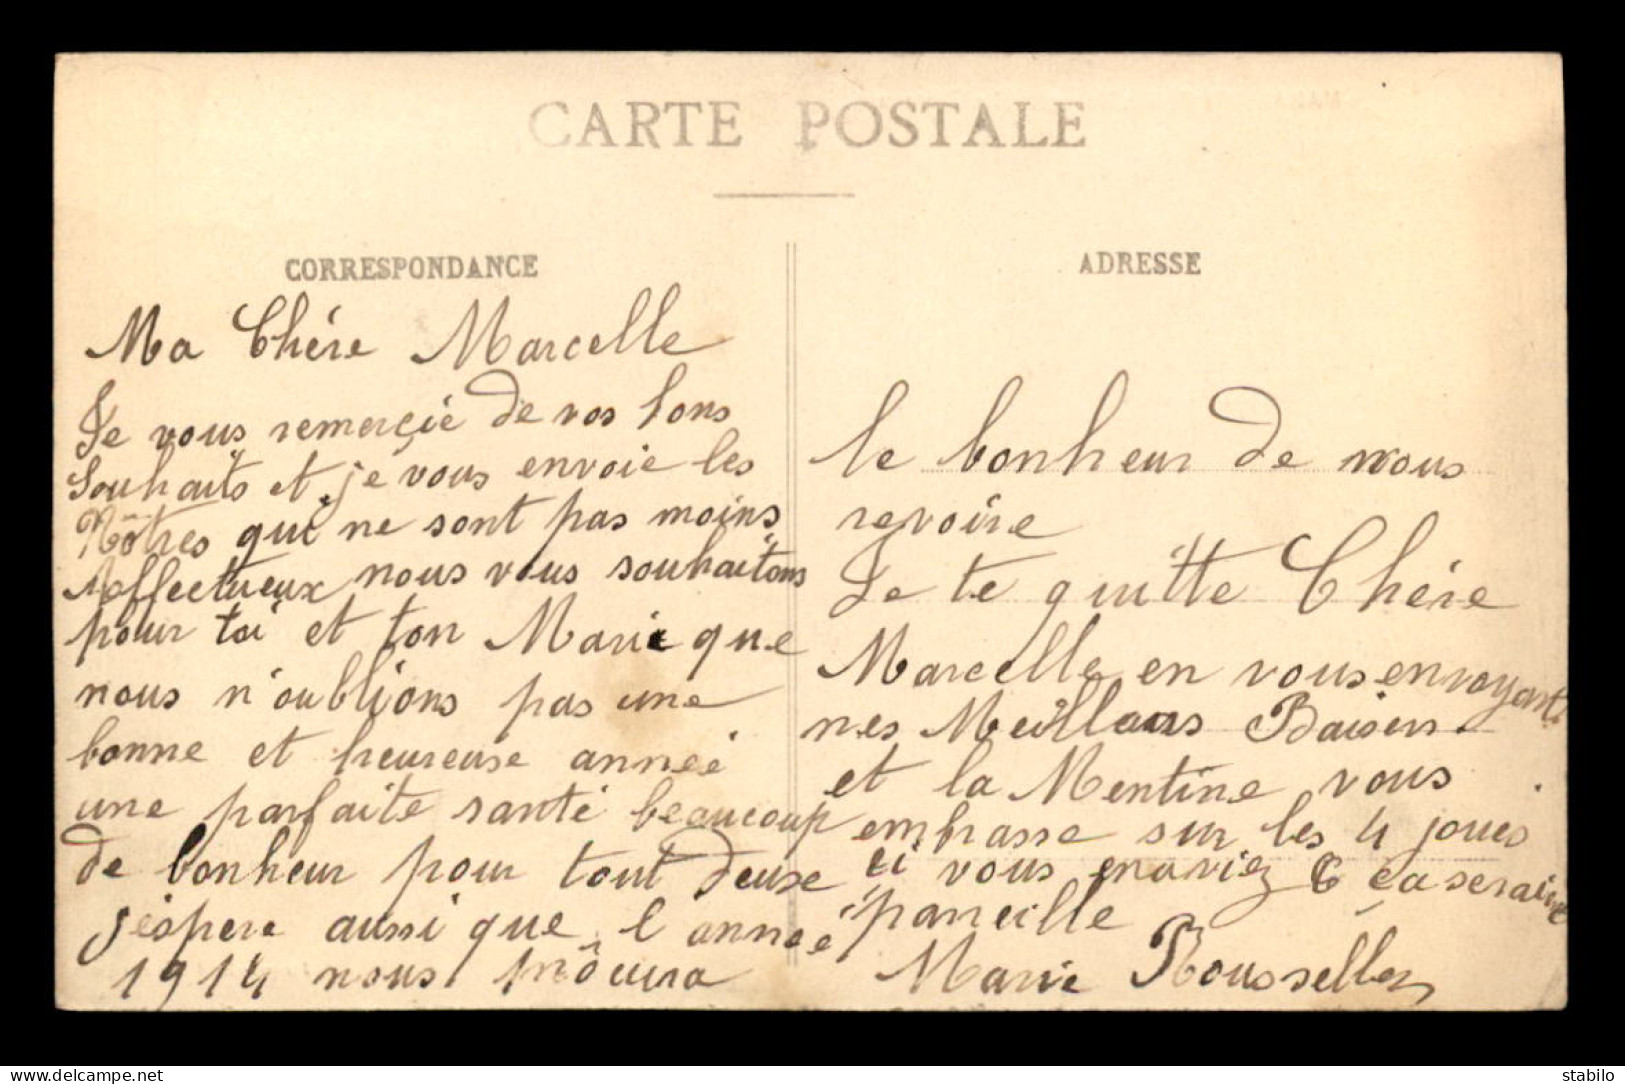 CARTE POSTALE
CORRESPONDANCE
Ma Chére Marcelle
Je vous remerçie de vos bons
Souhaits et je vous envoie les
Nôtres qui ne sont pas moins
Affectueux nous vous souhaitons
pour toi et ton Marie que
nous n'oublions pas une
bonne et heureuse année
une parfaite santé beaucoup
de bonheur pour tout deuxe
j'éspere aussi que l'année
1914 nous prôcura
ADRESSE
le bonheur de nous
revoire
Je te quitte Chére
Marcelle en vous envoyant
nes Meillaurs Baisers
et la Mentine vous
embrasse sur les 4 joues
si vous enaviez 6 çaseraive
pareille
Marie Rousselle
delcampe.net
stabilo